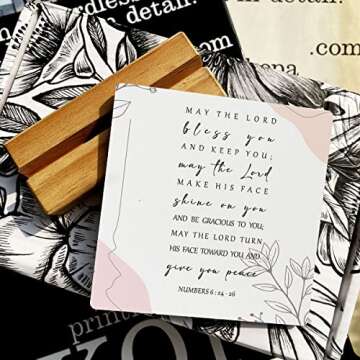 essly
detail.
in detail.
.com
MAY THE LORD
bless you
AND KEEP YOU;
may the Lord
MAKE HIS FACE
shine on you
AND BE GRACIOUS TO YOU;
MAY THE LORD TURN
HIS FACE TOWARD YOU AND
give you peace
NUMBERS 6:24-26
print